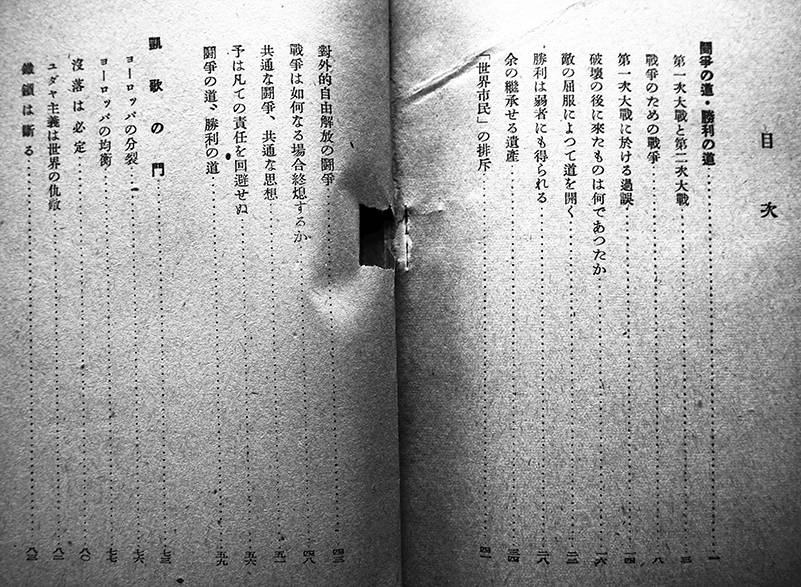 目次
鬪爭の道・勝利の道……一
第一次大戰と第二次大戰……三
戰爭のための戰爭……八
第一次大戰に於ける過誤……一四
破壞の後に來たものは何であつたか……一六
敵の屈服によつて道を開く……二三
勝利は弱者にも得られる……二八
余の繼承せる遺產……三四
「世界市民」の排斥……四一
對外的自由解放の鬪爭……四三
戰爭は如何なる場合終熄するか……四八
共通な鬪爭、共通な思想……五一
予は凡ての責任を回避せぬ……五六
鬪爭の道、勝利の道……五九
凱歌の門……七三
ヨーロッパの分裂……七六
ヨーロッパの均衡……七七
沒落は必定……八〇
ユダヤ主義は世界の仇敵……八二
鐵鎖は斷る……八三